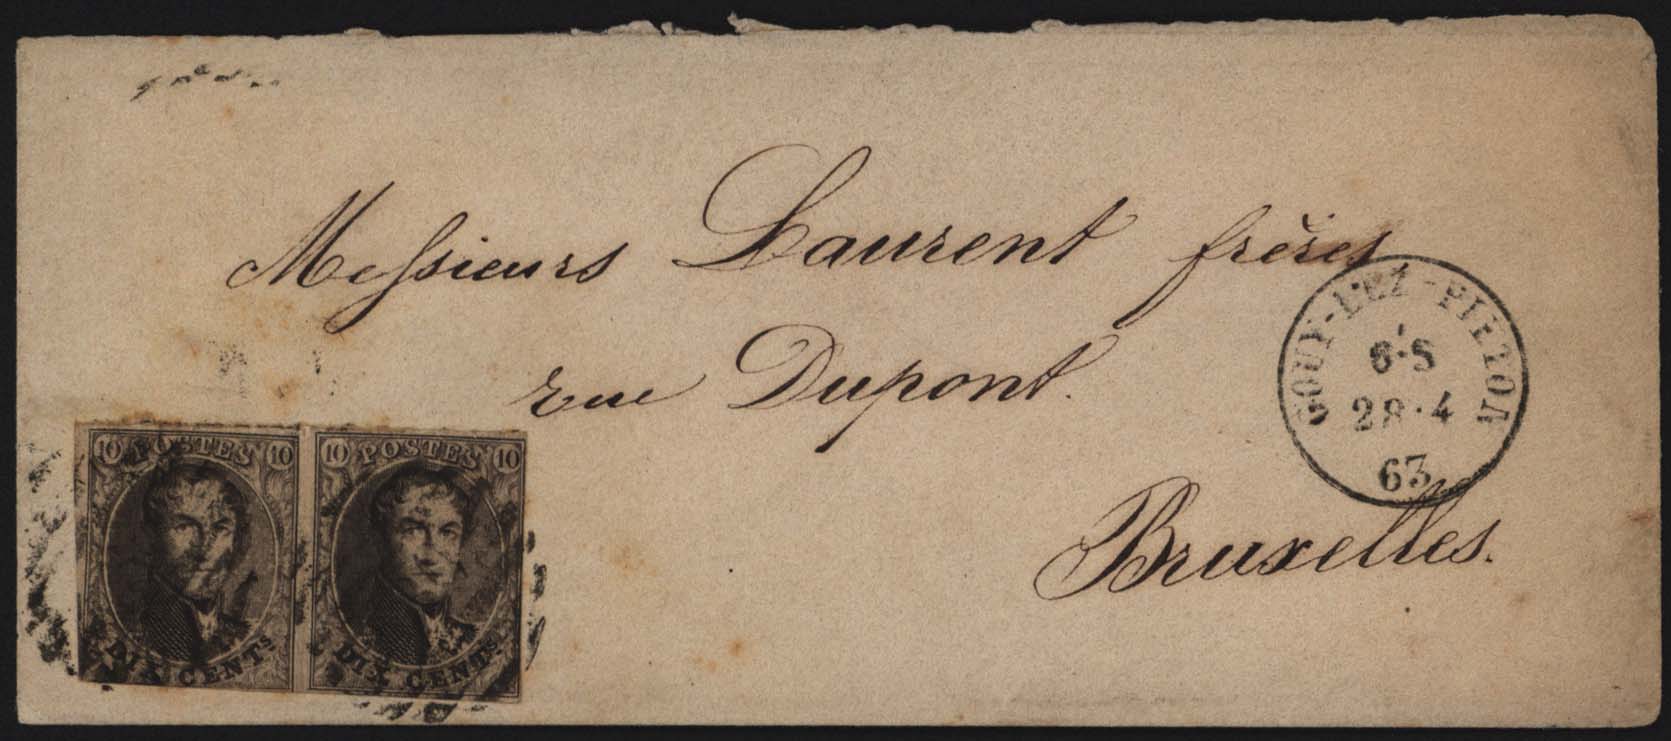 Messieurs Laurent frères
rue Dupont.
Bruxelles.
GOUY-LEZ-PIÉTON
6·S
28·4
63
10 POSTES 10
DIX CENTS
10 POSTES 10
DIX CENTS